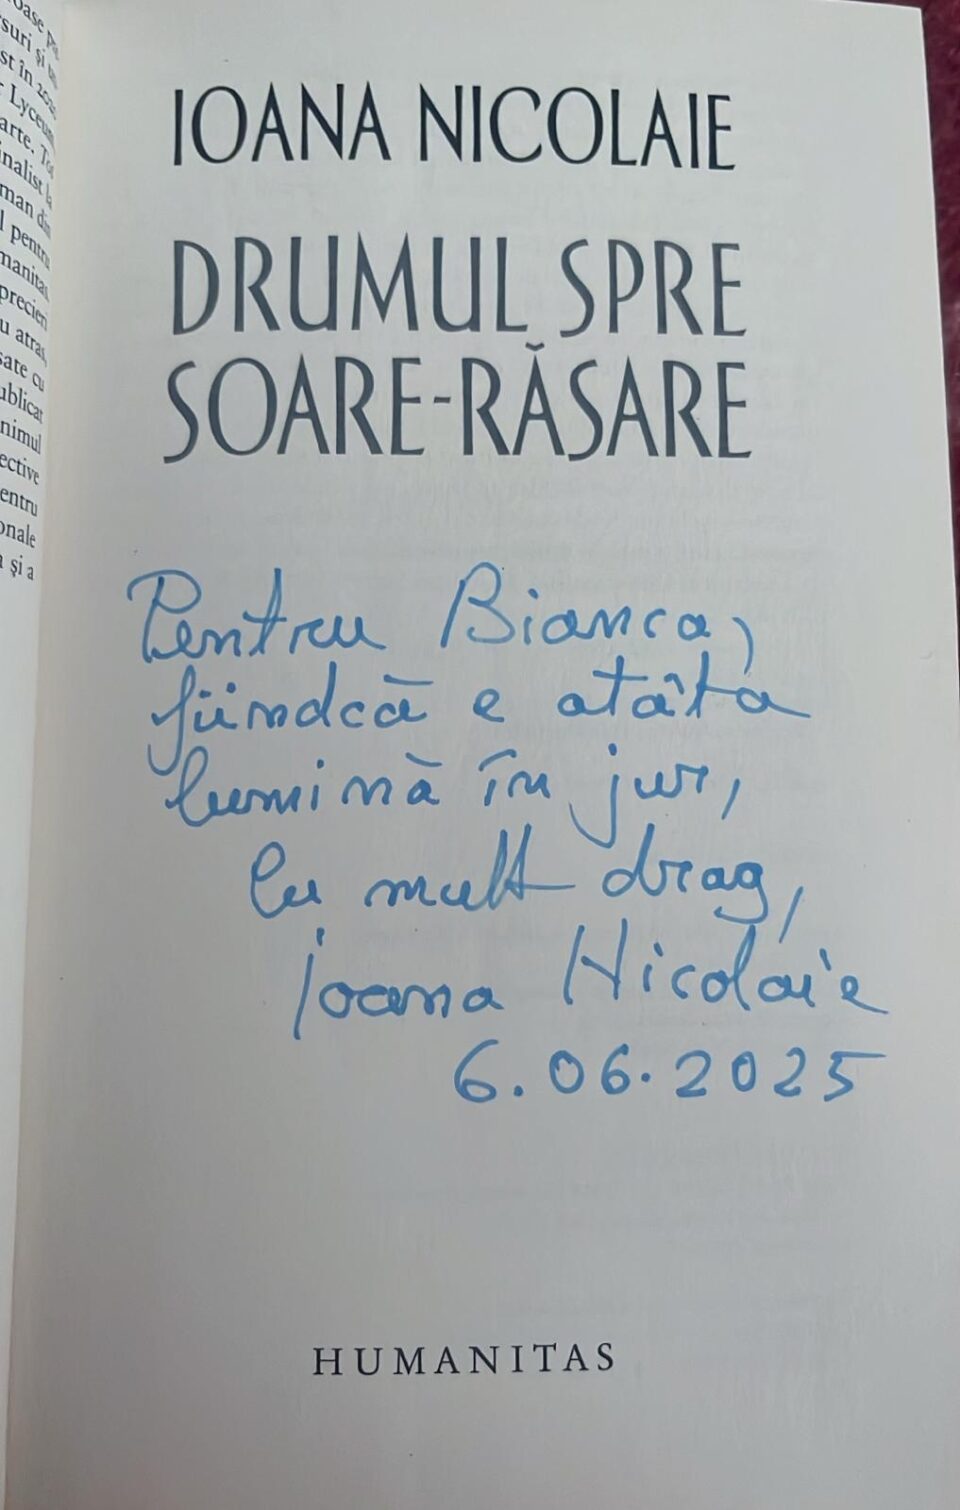 st în 202
Lyceum
arte. To
inalist la
man din
l pentru
manitas
precieri
u atras,
sate cu
ublicat
nimul
ective
entru
onale
și a
IOANA NICOLAIE
DRUMUL SPRE
SOARE-RĂSARE
Pentru Bianca,
fiindcă e atâta
lumină în jur,
Cu mult drag,
Ioana Nicolaie
6.06.2025
HUMANITAS